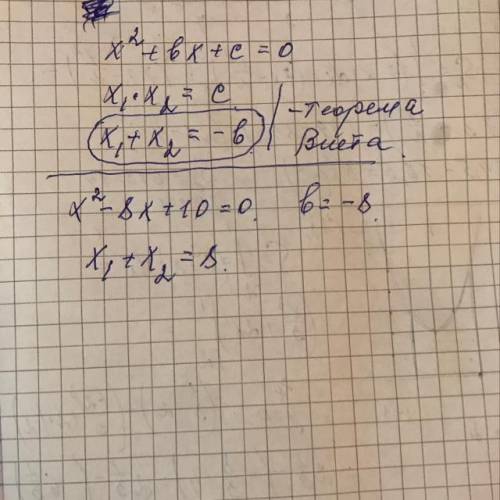 x² + bx + c = 0
x₁ · x₂ = c
x₁ + x₂ = -b. - теорема Виета.
x² - 8x + 10 = 0. b = -8.
x₁ + x₂ = 8.